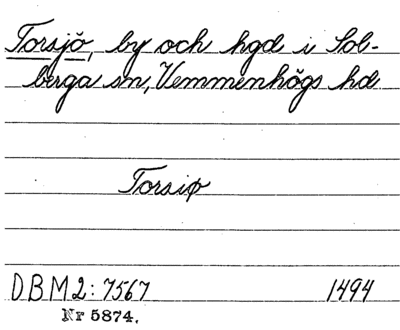 Torsjö, by och hgd i Sol-
berga sn, Vemmenhögs hd
Torsiø
DBM2:7567 1494
Nr 5874.